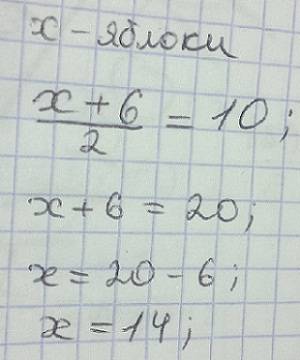 x - яблоки
x + 6 / 2 = 10;
x + 6 = 20;
x = 20 - 6;
x = 14;